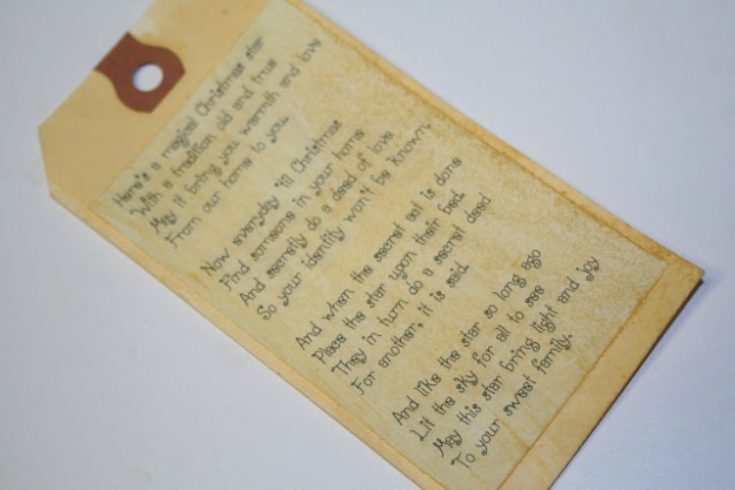 Here's a magical Christmas star
With a tradition old and true
May it bring you warmth and love
From our home to you.
Now everyday 'til Christmas
Find someone in your home
And secretly do a deed of love
So your identity won't be known.
And when the secret act is done
Place the star upon their bed.
They in turn do a secret deed
For another, it is said.
And like the star so long ago
Lit the sky for all to see
May this star bring light and joy
To your sweet family.